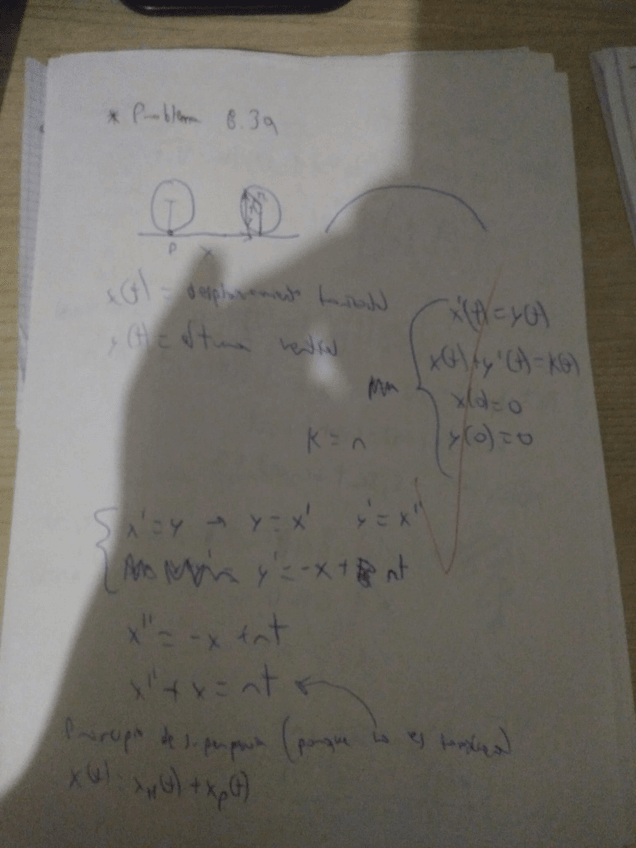 * Problema 8.3a
P
x
x(t) = desplazamiento horizontal
y(t) = altura vertical
x'(t) = y(t)
x(t) + y'(t) = k(t)
x(0) = 0
y(0) = 0
k = n
x' = y → y = x' y' = x''
y' = -x + nt
x'' = -x + nt
x'' + x = nt
Principio de superposición (porque no es
x(t) = x_H(t) + x_p(t)